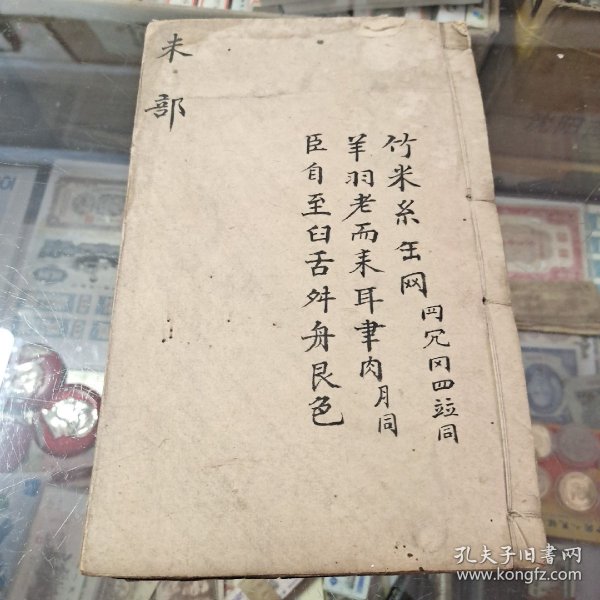 未部
竹米糸缶网冈冗冈四竝同
羊羽老而耒耳聿肉月同
臣自至臼舌舛舟艮色
孔夫子旧书网
www.kongfz.com